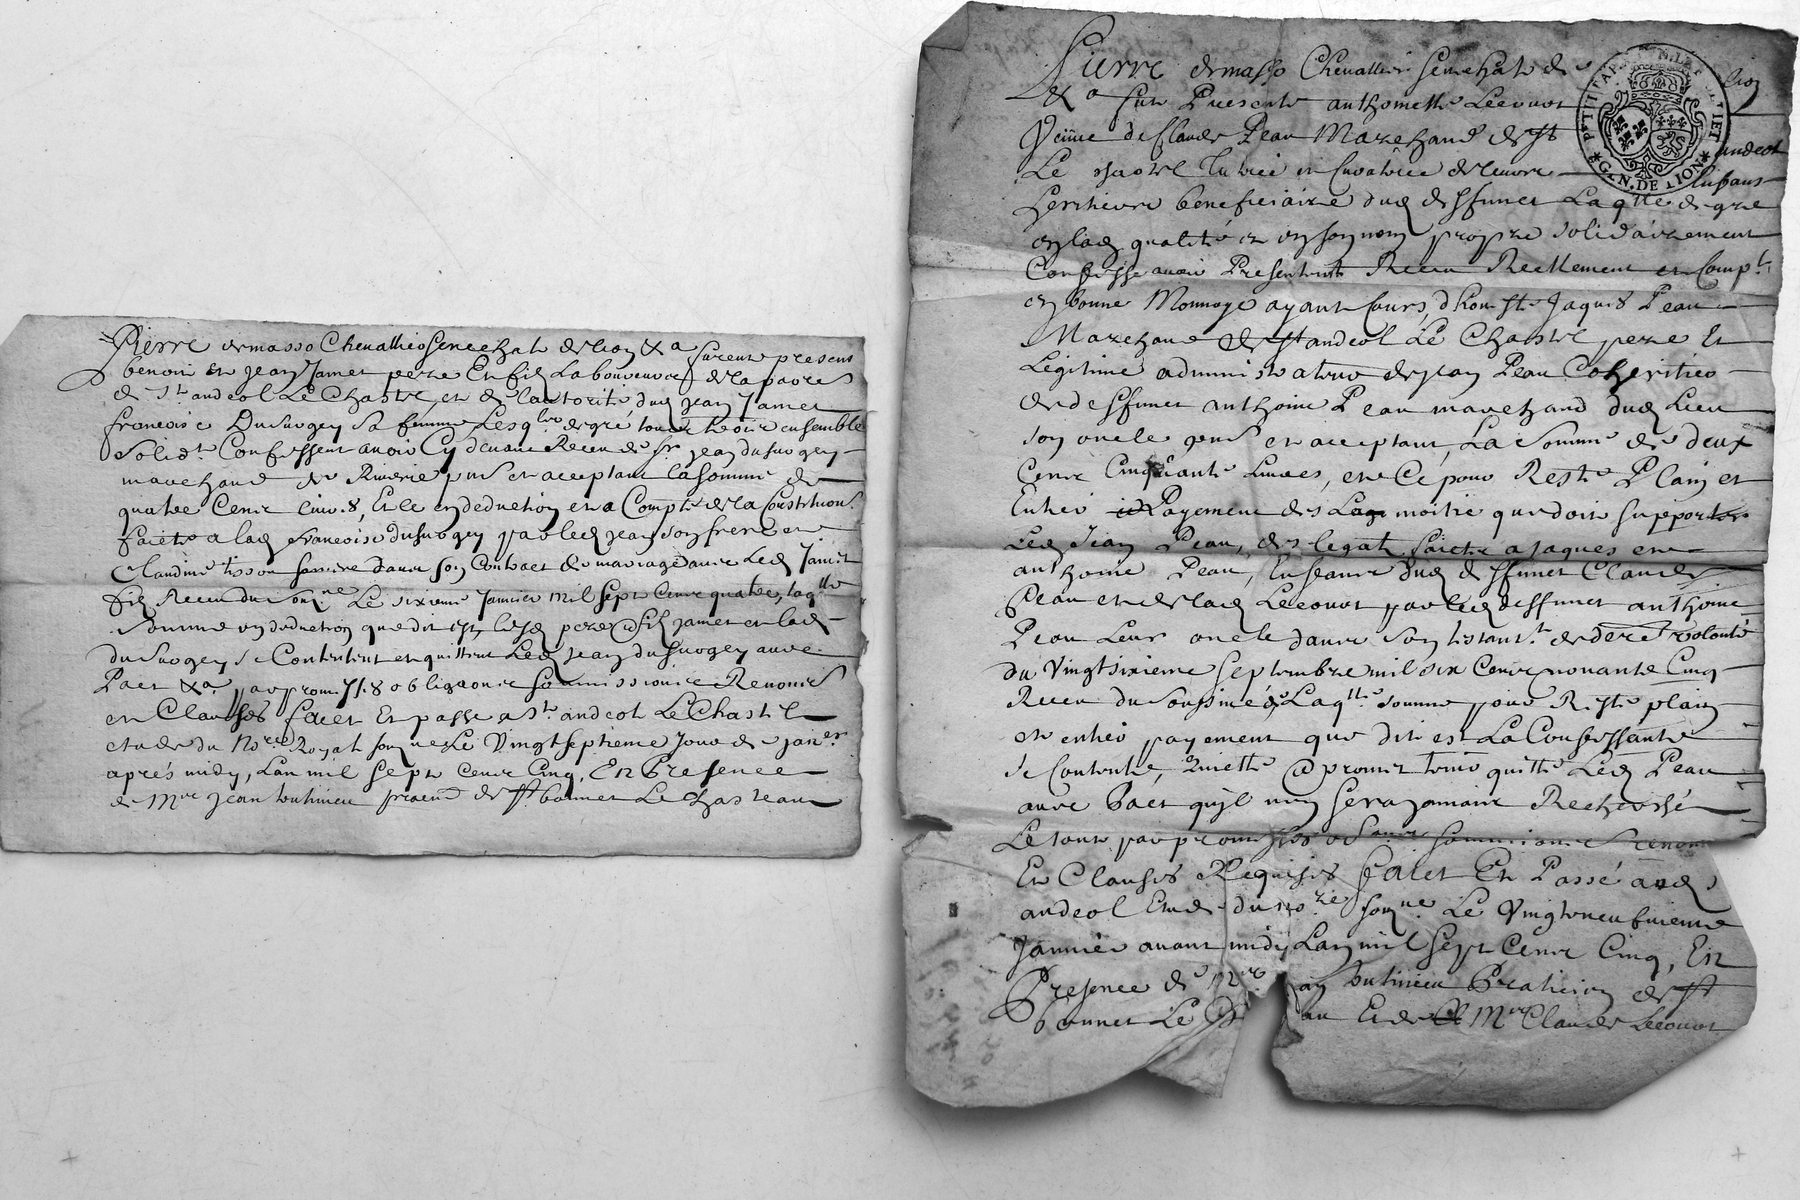 Pierre de masso Chevallier Senechal de lion &a furent presens
benoit et jean Jamet pere Et fils Laboureurs de la paroe
de St andeol Le Chastel et de lautorité dud jean Jamet
francoise Dusurgey sa femme Lesqls de gré tous trois ensemble
solidt Confessent avoir Cy devant Receu de sr jean dusurgey
marchand de Riverie pnt et acceptant la somme de
quatre Cent livres, Et ce en deduction et a Compte de la Constituon
faicte a lad francoise dusurgey par led jean son frere et
Claudine tisson sa mere dans son Contract de mariage avec Led Jamet
fils Receu du sousne Le sixieme Janvier mil sept Cent quatre, laqlle
somme en deduction que dit est, lesd pere et fils Jamet et lad
dusurgey se Contentent et quittent Led jean dusurgey avec
Pact &a par promesses obligaons soumissions Renons
et Clauses faict Et passé a St andeol Le Chastel
etude du Nore Royal sousne Le Vingt septieme Jour de janer
aprés midy, Lan mil sept Cent Cinq, En Presence
de Mre jean toutinieu praen de St bonnet Le Chasteau
Pierre de masso Chevallier Senechal de lion
&a fut Presente anthoinette Lecouot
Veuve de Claude Peau Marchand de St andeol
Le chastel Tutrice et Curatrice de leurs enfans
heritiere beneficiaire dud deffunct Laqlle de gré
en lad qualité et en son nom propre solidairement
Confesse avoir Presentemt Receu Reellement et Compt
en bonne Monnoye ayant Cours, dhonste Jaques Peau
Marchand de St andeol Le Chastel pere Et
Légitime administrateur de jean Peau Coheritier
de deffunct anthoine Peau marchand dud Lieu
son oncle pnt et acceptant, La somme de deux
Cent Cinquante Livres, et ce pour Reste Plain et
Entier Payement des La moitié que doit supporter
Led Jean Peau, des legats faicts a Jaques et
anthoine Peau, Enfans dud deffunct Claude
Peau et de lad Lecouot par led deffunct anthoine
Peau Leur oncle dans son testamt de dere volonté
du Vingtsixieme septembre mil six Cent nonante Cinq
Receu du soussiné, Laqlle somme pour Reste plain
et entier payement que dit est La Confessante
se Contente, Quitte et promet tenir quitte Led Peau
avec Pact quil nen sera jamais Recherché
Le tout par promesses obons soumissions Renon
Et Clauses Requises faict Et Passé aud St
andeol Etude du nore sousne Le Vingtneufvieme
Janvier avant midy Lan mil sept Cent Cinq, En
Presence de Mre toutinieu Praticien de St
bonnet Le Et de Mre Claude Lecouot
P·TIT PAP· GEN. DE LION